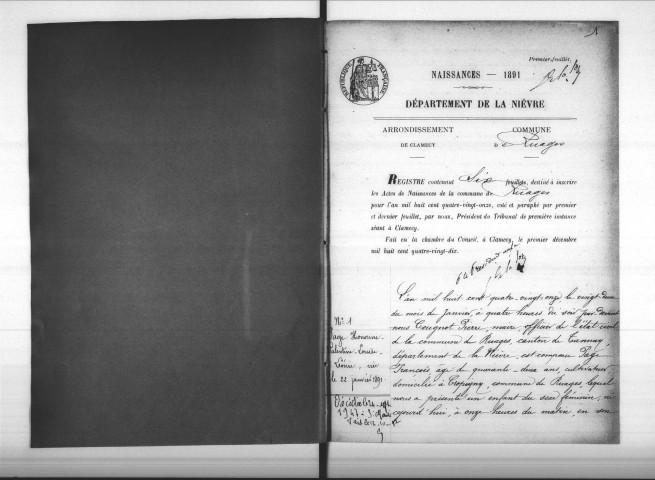 Premier feuillet.
NAISSANCES — 1891
RÉPUBLIQUE FRANÇAISE
DÉPARTEMENT DE LA NIÈVRE
ARRONDISSEMENT
DE CLAMECY
COMMUNE
d Ruages
REGISTRE contenant Six feuillets, destiné à inscrire
les Actes de Naissances de la commune de Ruages
pour l'an mil huit cent quatre-vingt-onze, coté et paraphé par premier
et dernier feuillet, par nous, Président du Tribunal de première instance
séant à Clamecy.
Fait en la chambre du Conseil, à Clamecy, le premier décembre
mil huit cent quatre-vingt-dix.
L'an mil huit cent quatre-vingt-onze le vingt-deux
du mois de Janvier, à quatre heures du soir par devant
nous Cougnot Pierre, maire, officier de l'état civil
de la commune de Ruages, canton de Tannay,
département de la Nièvre, est comparu Page
François, âgé de quarante-deux ans cultivateur
domicilié à commune de Ruages, lequel
nous a présenté un enfant du sexe féminin, né
aujourd'hui, à onze heures du matin, en son
N° 1
Page Honorine
Louise
née
le 22 janvier 1891
Décédée
1947